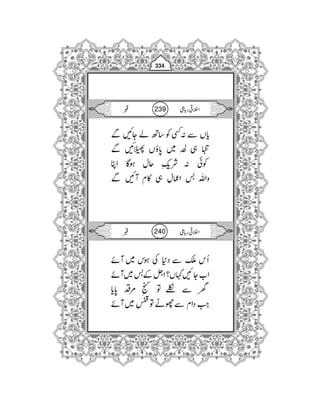 334
اخلاقی رباعی 239 قبر
یاں سے نہ کسی کو ساتھ لے جائیں گے
تنہا ہی لحد میں پاؤں پھیلائیں گے
کوئی نہ شریک حال ہوگا اپنا
واللہ بس اعمال ہی کام آئیں گے
اخلاقی رباعی 240 قبر
اُس ملک سے دنیا کی ہوس میں آئے
اب جائیں کہاں؟ اجل کے بس میں آئے
گھر سے نکلے تو کنج مرقد پایا
جب دام سے چھوٹے تو قفس میں آئے